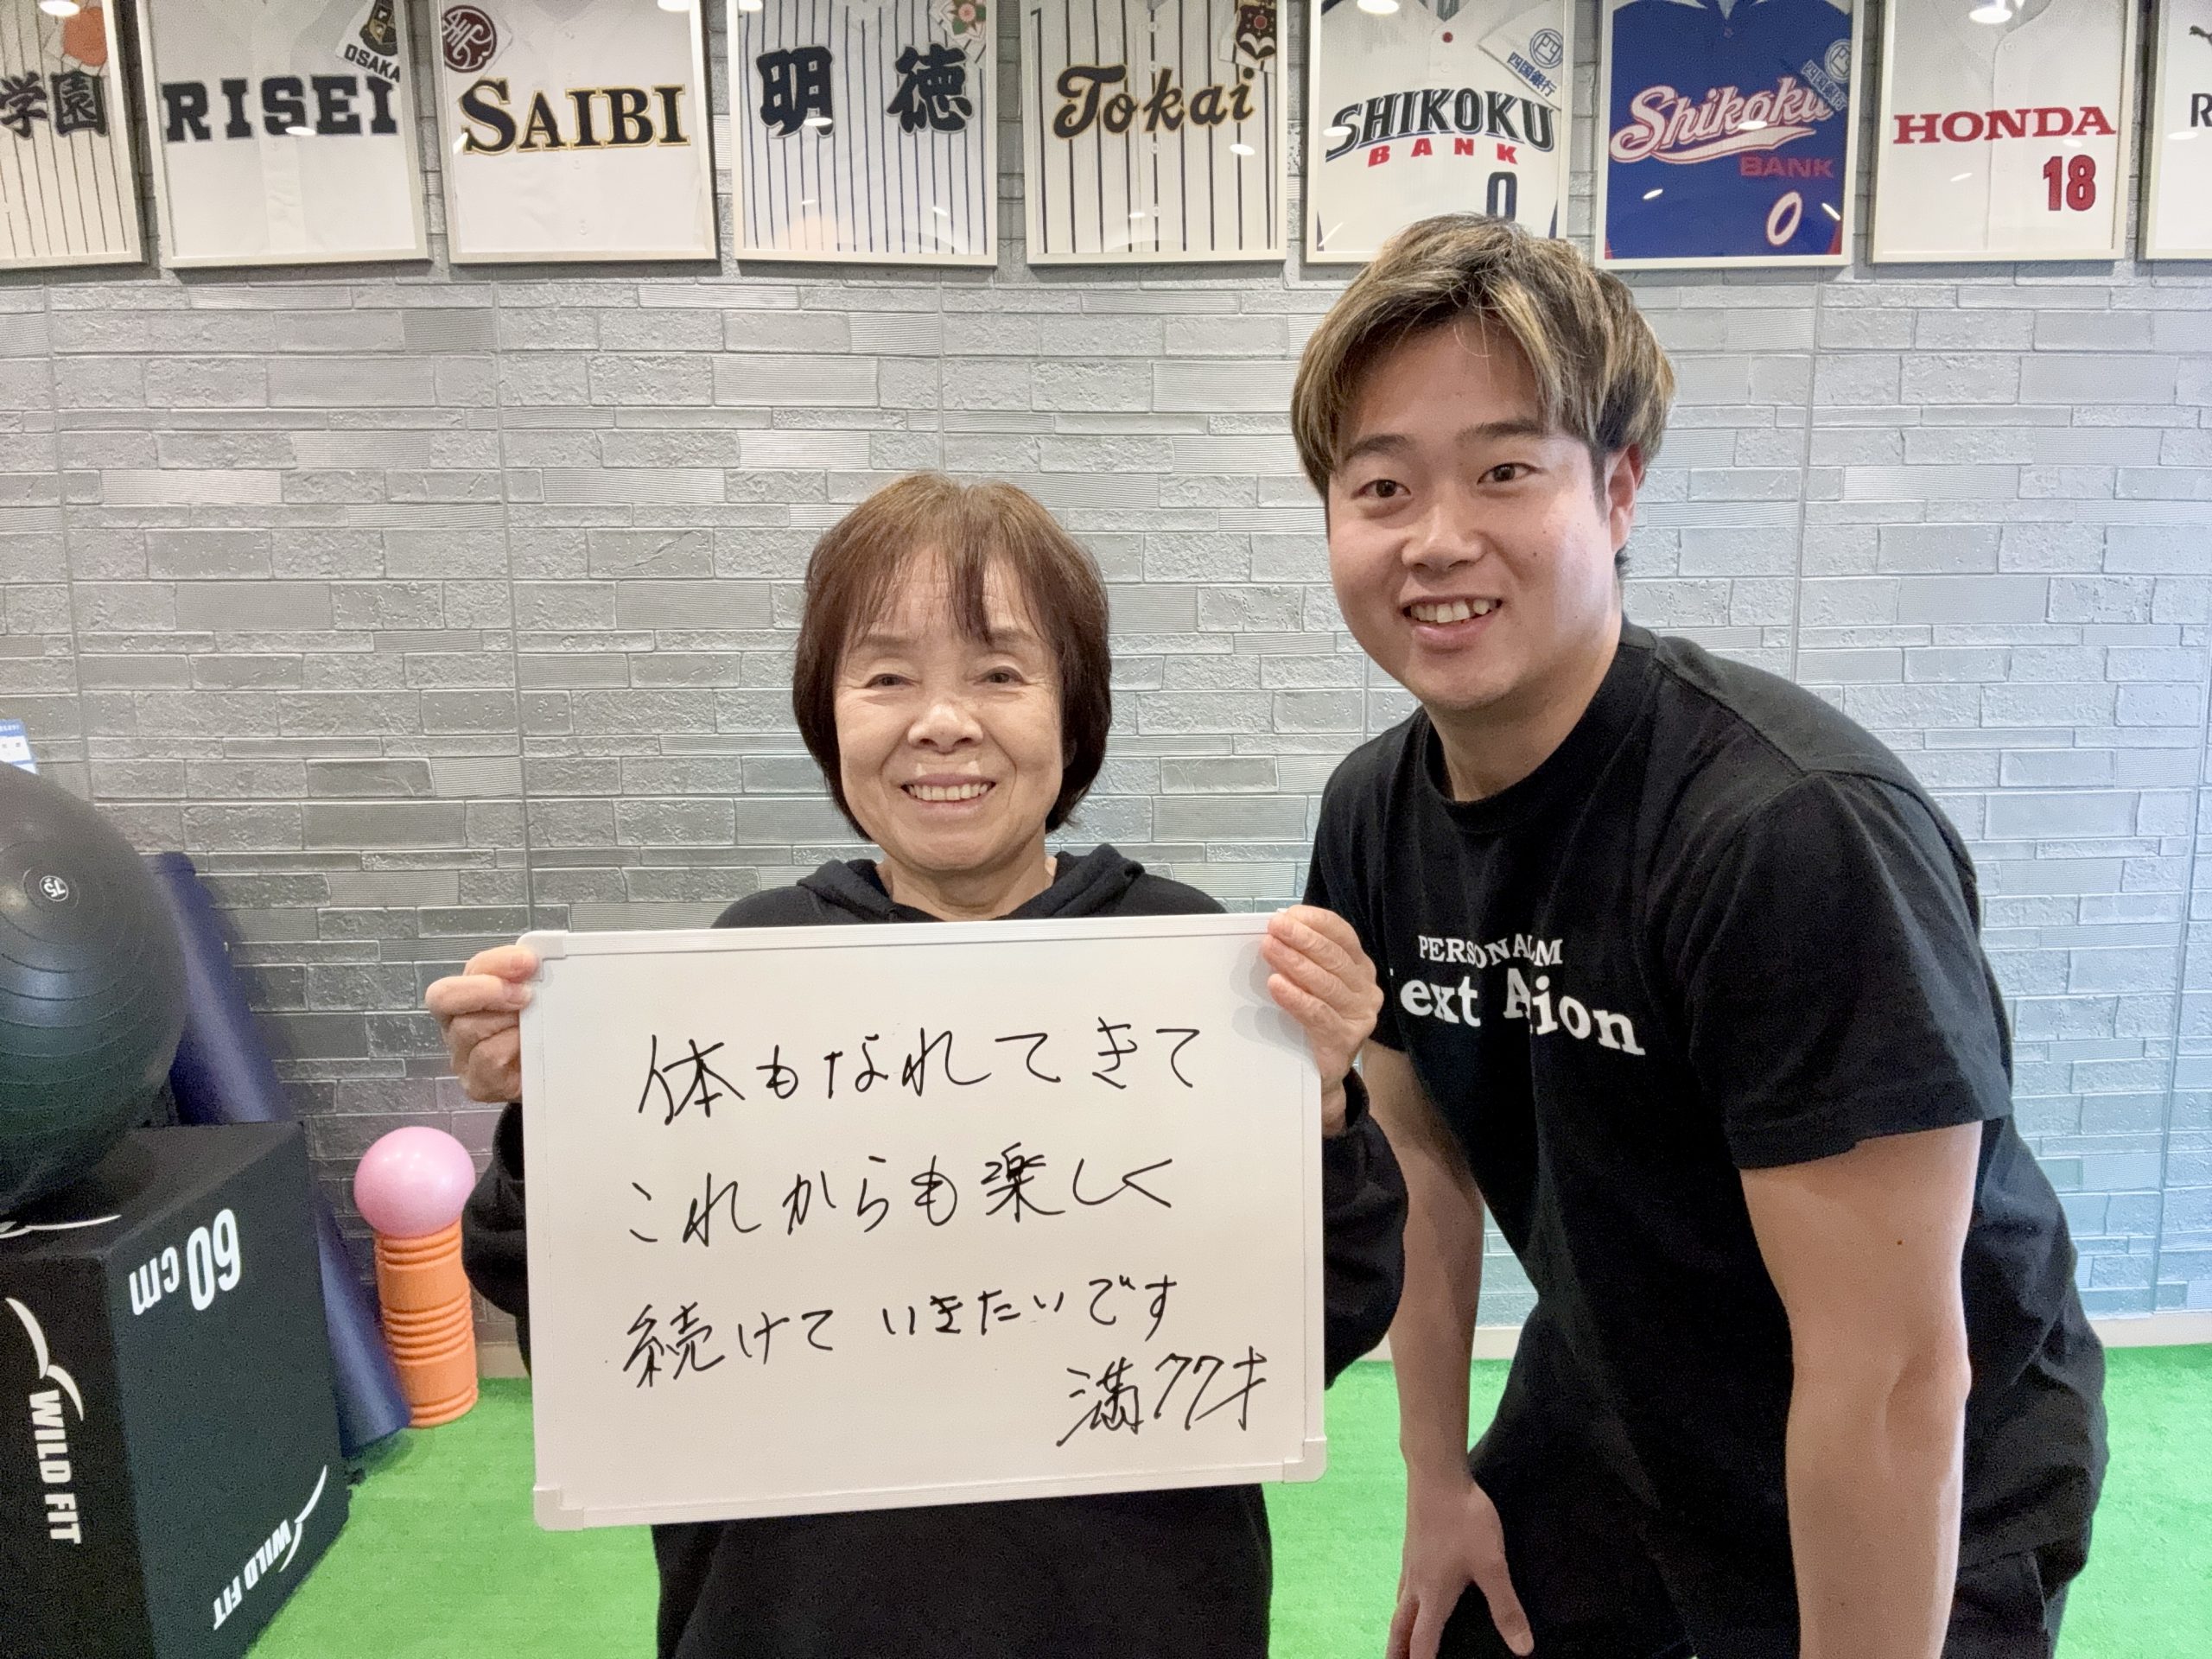 学園
RISEI
OSAKA
SAIBI
明徳
Tokai
四国銀行
SHIKOKU
BANK
0
四国銀行
Shikoku
BANK
0
HONDA
18
R
15
PERSONAL
ext A ion
体もなれてきて
これからも楽しく
続けていきたいです
満77才
60cm
WILD FIT
WILD FIT